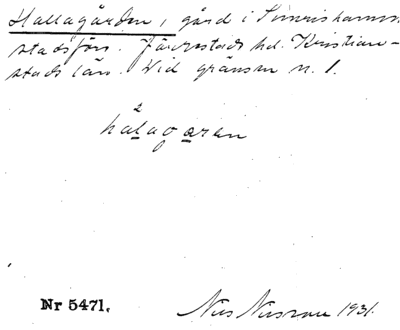 Hallagården, gård i Simrishamns
stadsförs. Järrestads hd. Kristian-
stads län. Wid gränsen n. 1.
hálagaren
Nr 5471.
Nils Nilsson 1931.